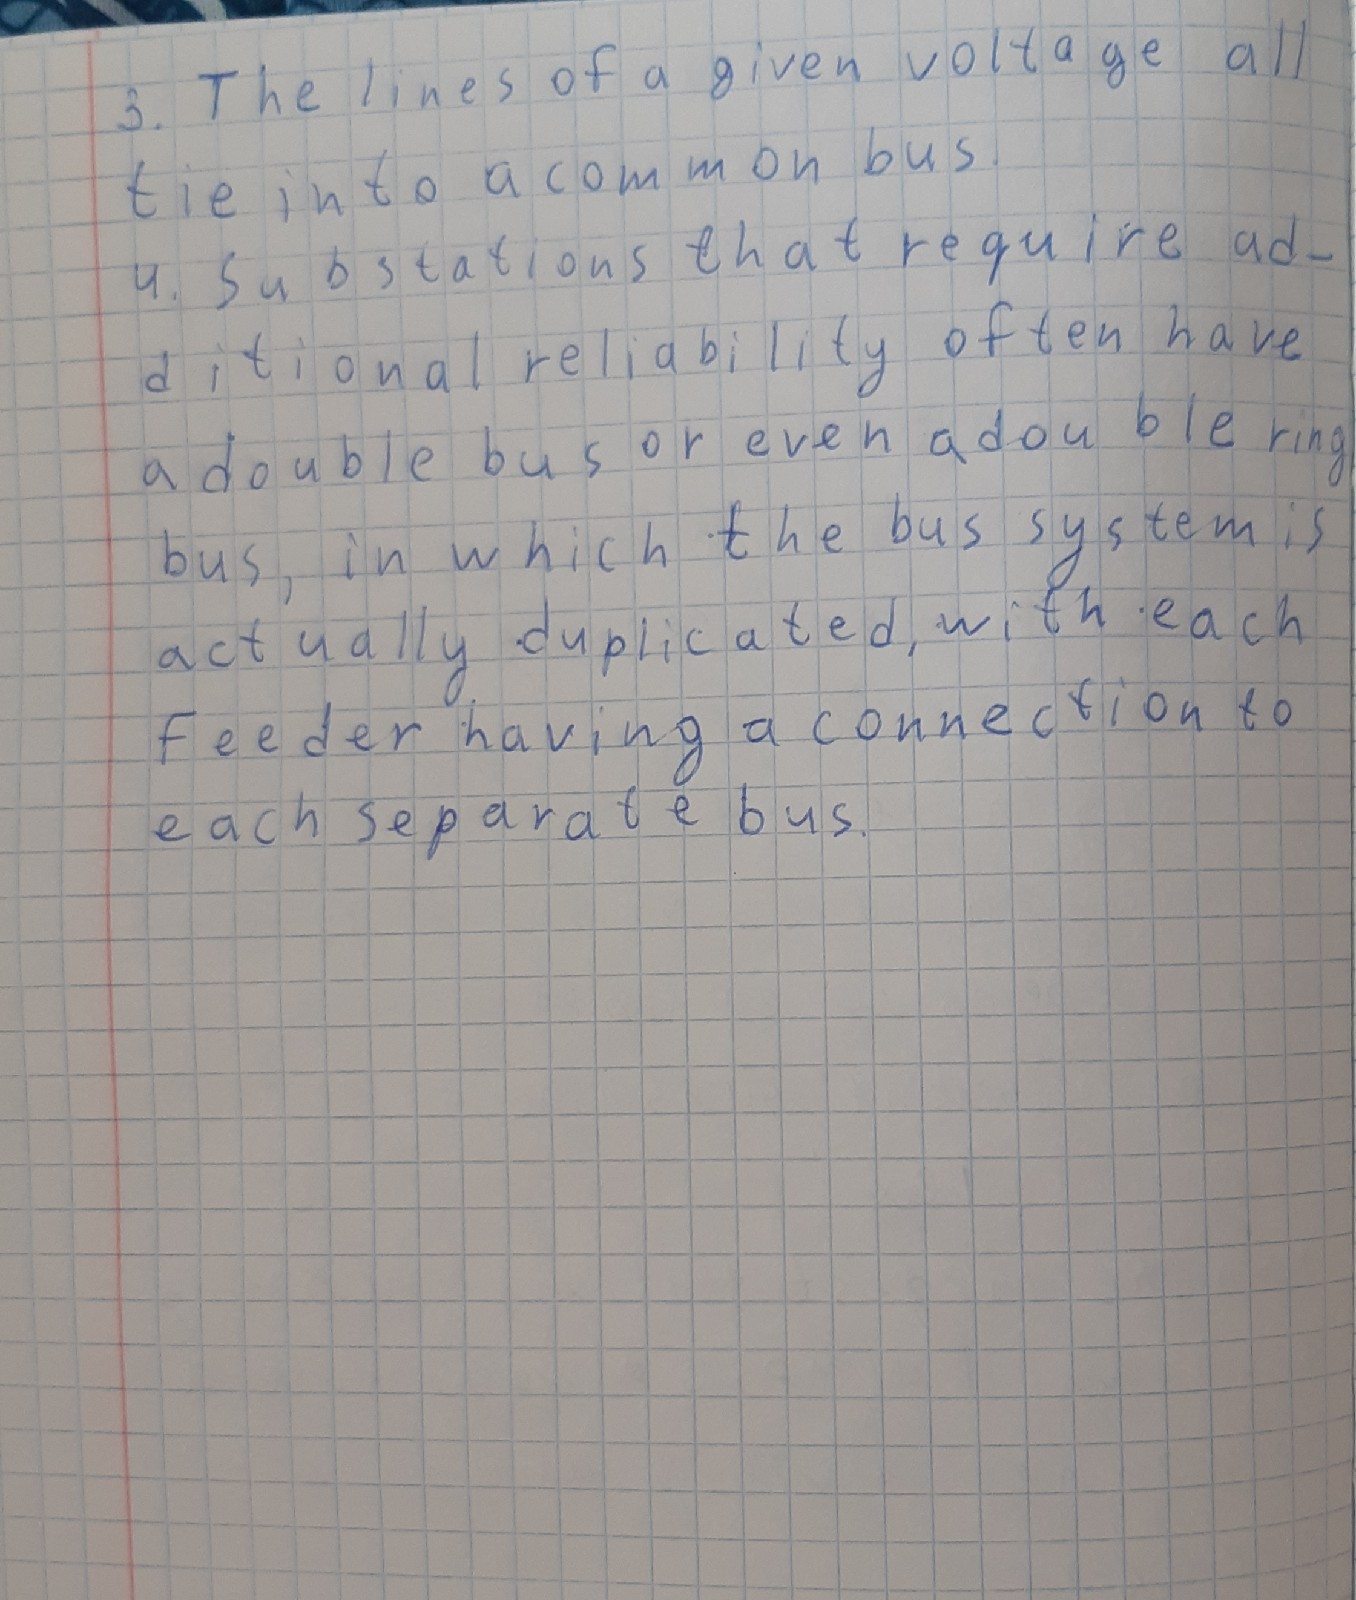 3. The lines of a given voltage all
tie into a common bus.
4. Substations that require ad-
ditional reliability often have
a double bus or even a double ring
bus, in which the bus system is
actually duplicated, with each
feeder having a connection to
each separate bus.